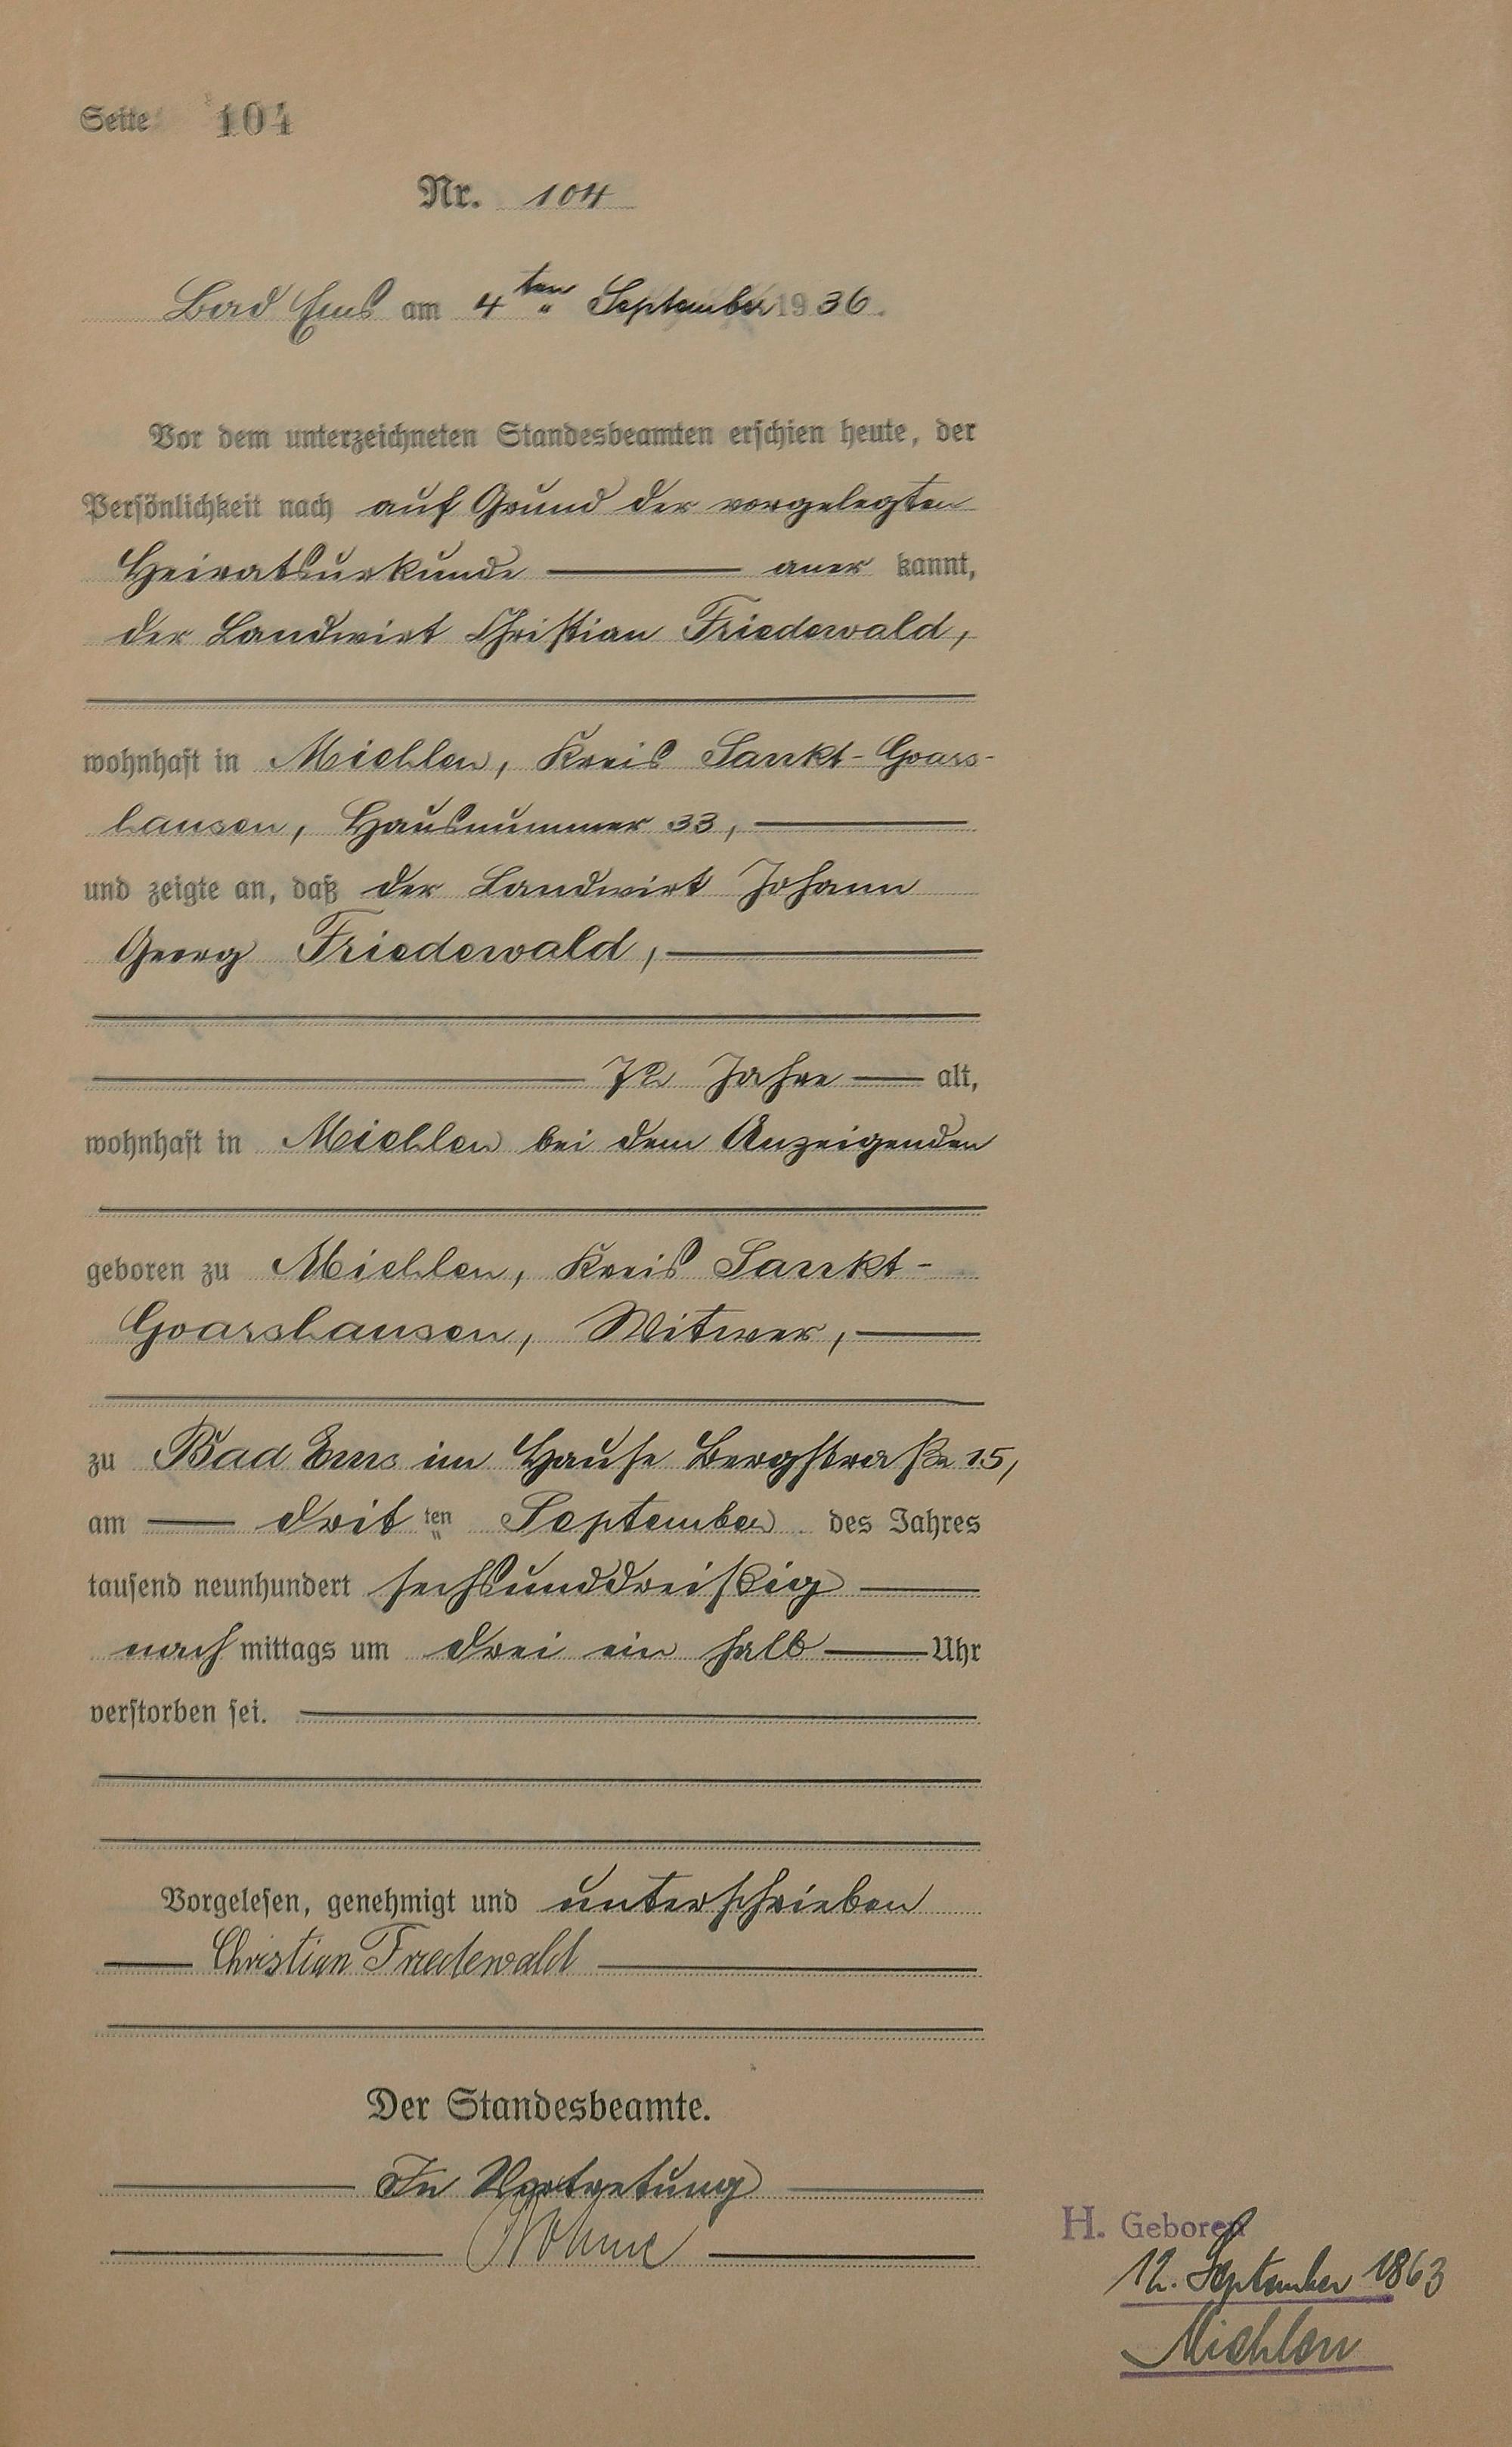 Seite 104
Nr. 104
Bad Ems am 4ten September 1936.
Vor dem unterzeichneten Standesbeamten erschien heute, der
Persönlichkeit nach auf Grund der vorgelegten
Heiratsurkunde aner kannt,
der Landwirt Christian Friedewald,
wohnhaft in Miehlen, Kreis Sankt-Goars-
hausen, Hausnummer 33,
und zeigte an, daß der Landwirt Johann
Georg Friedewald,
72 Jahre alt,
wohnhaft in Miehlen bei dem Anzeigenden
geboren zu Miehlen, Kreis Sankt-
Goarshausen, Witwer,
zu Bad Ems im Hause Bergstraße 15,
am dritten September des Jahres
tausend neunhundert sechsunddreißig
nachmittags um drei ein halb Uhr
verstorben sei.
Vorgelesen, genehmigt und unterschrieben
Christian Friedewald
Der Standesbeamte.
In Vertretung
H. Geboren
12. September 1863
Miehlen